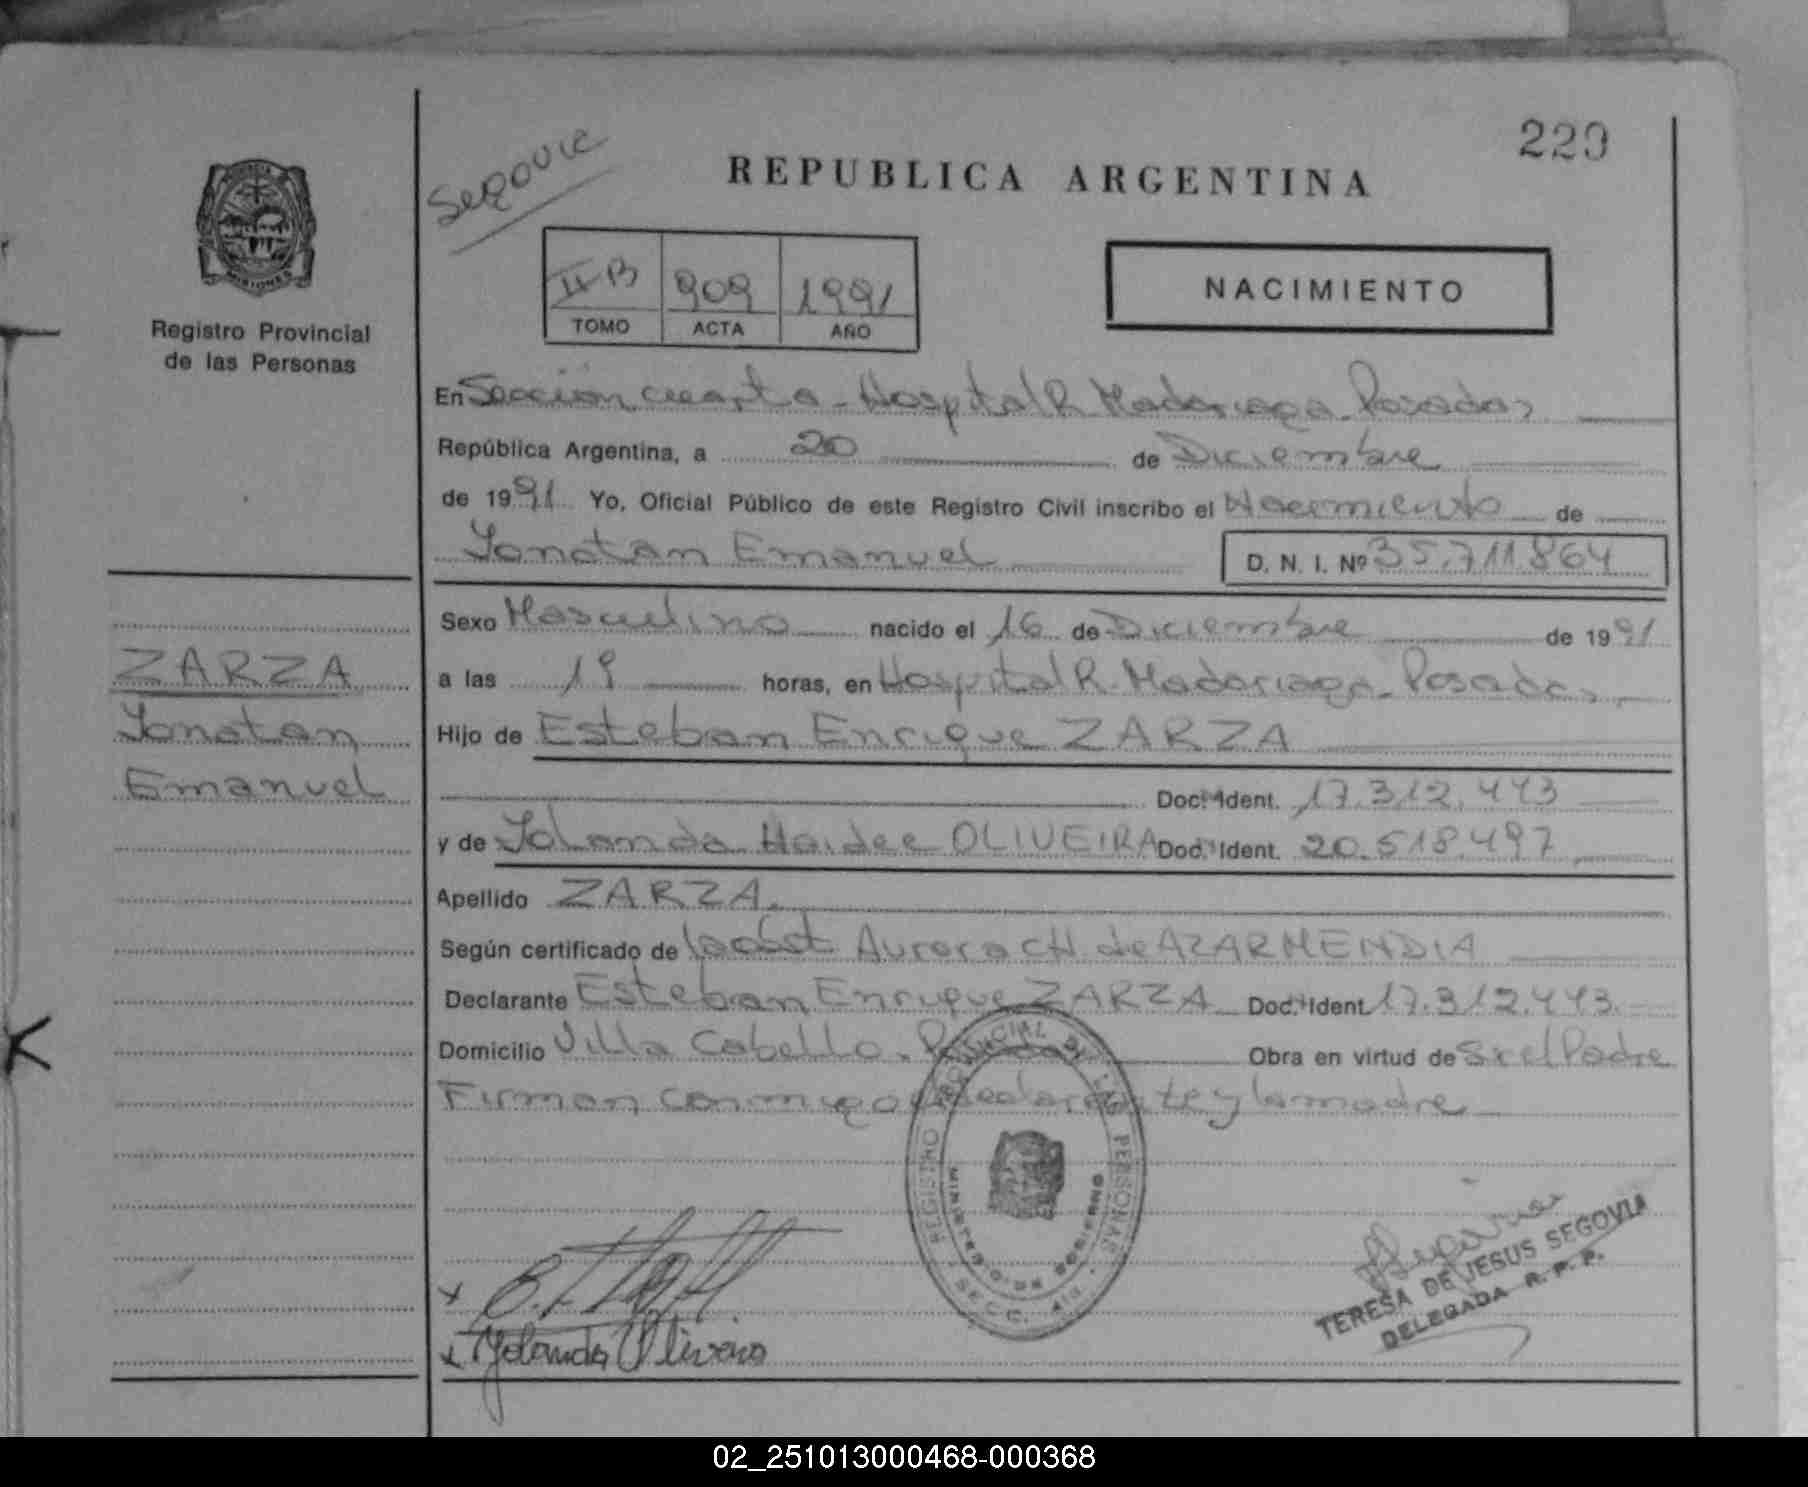 220
Segovia
REPUBLICA ARGENTINA
PROVINCIA
MISIONES
Registro Provincial
de las Personas
II B 909 1991
TOMO ACTA AÑO
NACIMIENTO
En Sección cuarta - Hospital R. Madariaga - Posadas
República Argentina, a 20 de Diciembre
de 1991 Yo, Oficial Público de este Registro Civil inscribo el Nacimiento de
Yonatan Emanuel D. N. I. Nº 35.711.864
Sexo Masculino nacido el 16 de Diciembre de 1991
a las 19 horas, en Hospital R. Madariaga - Posadas
Hijo de Esteban Enrique ZARZA
Doc. Ident. 17.312.443
y de Yolanda Haidee OLIVEIRA Doc. Ident. 20.518.497
Apellido ZARZA.
Según certificado de Aurora CH. de AZARMENDIA
Declarante Esteban Enrique ZARZA Doc. Ident. 17.312.443
Domicilio Villa Cabello. Posadas Obra en virtud de Ser el Padre
Firman conmigo el declarante y la madre
ZARZA
Yonatan
Emanuel
REGISTRO PROVINCIAL DE LAS PERSONAS
MINISTERIO DE GOBIERNO
SECC. 4ta.
x
x Yolanda Oliveira
TERESA DE JESUS SEGOVIA
DELEGADA R. P. P.
02_251013000468-000368